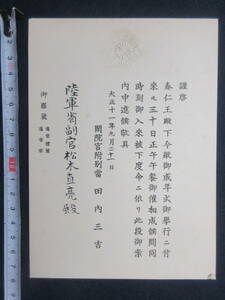 謹啓
春仁王殿下今般御成年式御擧行ニ付
來ル三十日正午午餐御催相成候間同
時刻御入來被下度命ニ依リ此段御案
内申進候敬具
大正十一年九月二十一日
閑院宮附別當 田內三吉
陸軍省副官松木直亮殿
御服裝